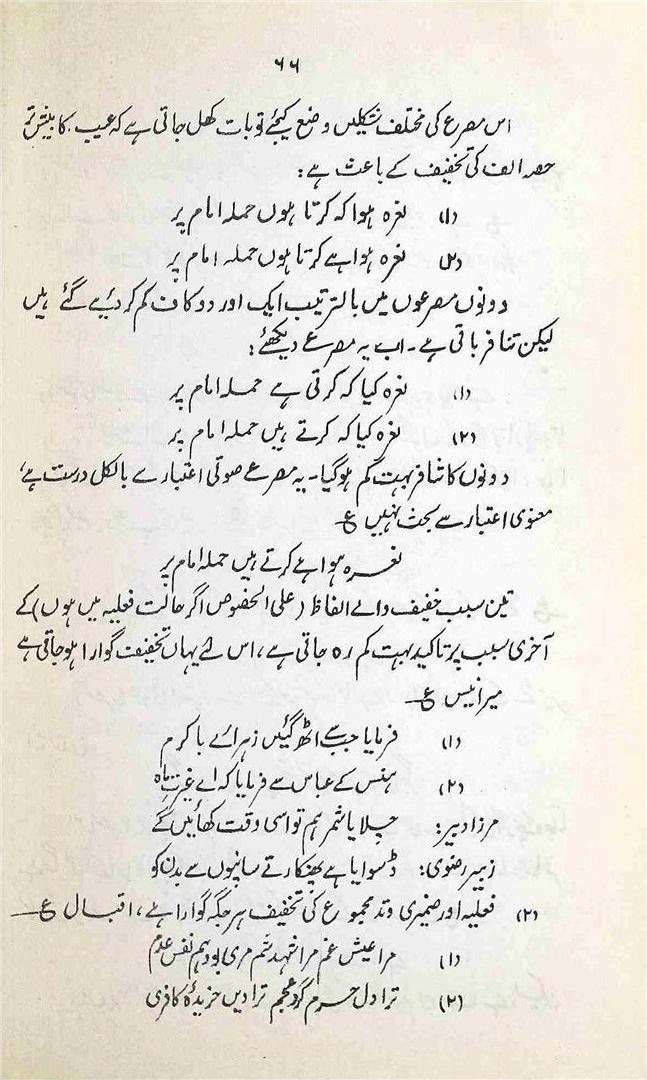 ۶۶
اس مصرع کی مختلف شکلیں وضع کیجئے تو بات کھل جاتی ہے کہ عیب کا بیش تر
حصہ الف کی تخفیف کے باعث ہے:
(۱) نعرہ ہوا کہ کرتا ہوں حملہ امام پر
(۲) نعرہ ہوا ہے کرتا ہوں حملہ امام پر
دونوں مصرعوں میں بالترتیب ایک اور دو کاف کم کر دیے گئے ہیں
لیکن تنافر باقی ہے۔ اب یہ مصرعے دیکھئے:
(۱) نعرہ کیا کہ کرتی ہے حملہ امام پر
(۲) نعرہ کیا کہ کرتے ہیں حملہ امام پر
دونوں کا تنافر بہت کم ہوگیا۔ یہ مصرعے صوتی اعتبار سے بالکل درست ہے،
معنوی اعتبار سے بحث نہیں ع
نعرہ ہوا ہے کرتے ہیں حملہ امام پر
تین سبب خفیف والے الفاظ (علی الخصوص اگر حالت فعلیہ میں ہوں) کے
آخری سبب پر تاکید بہت کم رہ جاتی ہے، اس لئے یہاں تخفیف گوارا ہو جاتی ہے
میر انیس ع
(۱) فرمایا جب سے اٹھ گئیں زہرائے باکرم
(۲) ہنس کے عباس سے فرمایا کہ اے غیرت ماہ
مرزا دبیر: چلایا شمر ہم تو اسی وقت کھائیں گے
زبیر رضوی: ڈسوایا ہے پھنکارتے سانپوں سے بدن کو
(۲) فعلیہ اور ضمیری وتد مجموع کی تخفیف ہر جگہ گوارا ہے، اقبال ع
(۱) مرا عیش غم مرا شہد سم مری بود ہم نفس عدم
(۲) ترا دل حرم گرو عجم ترا دیں خریدہ کافری